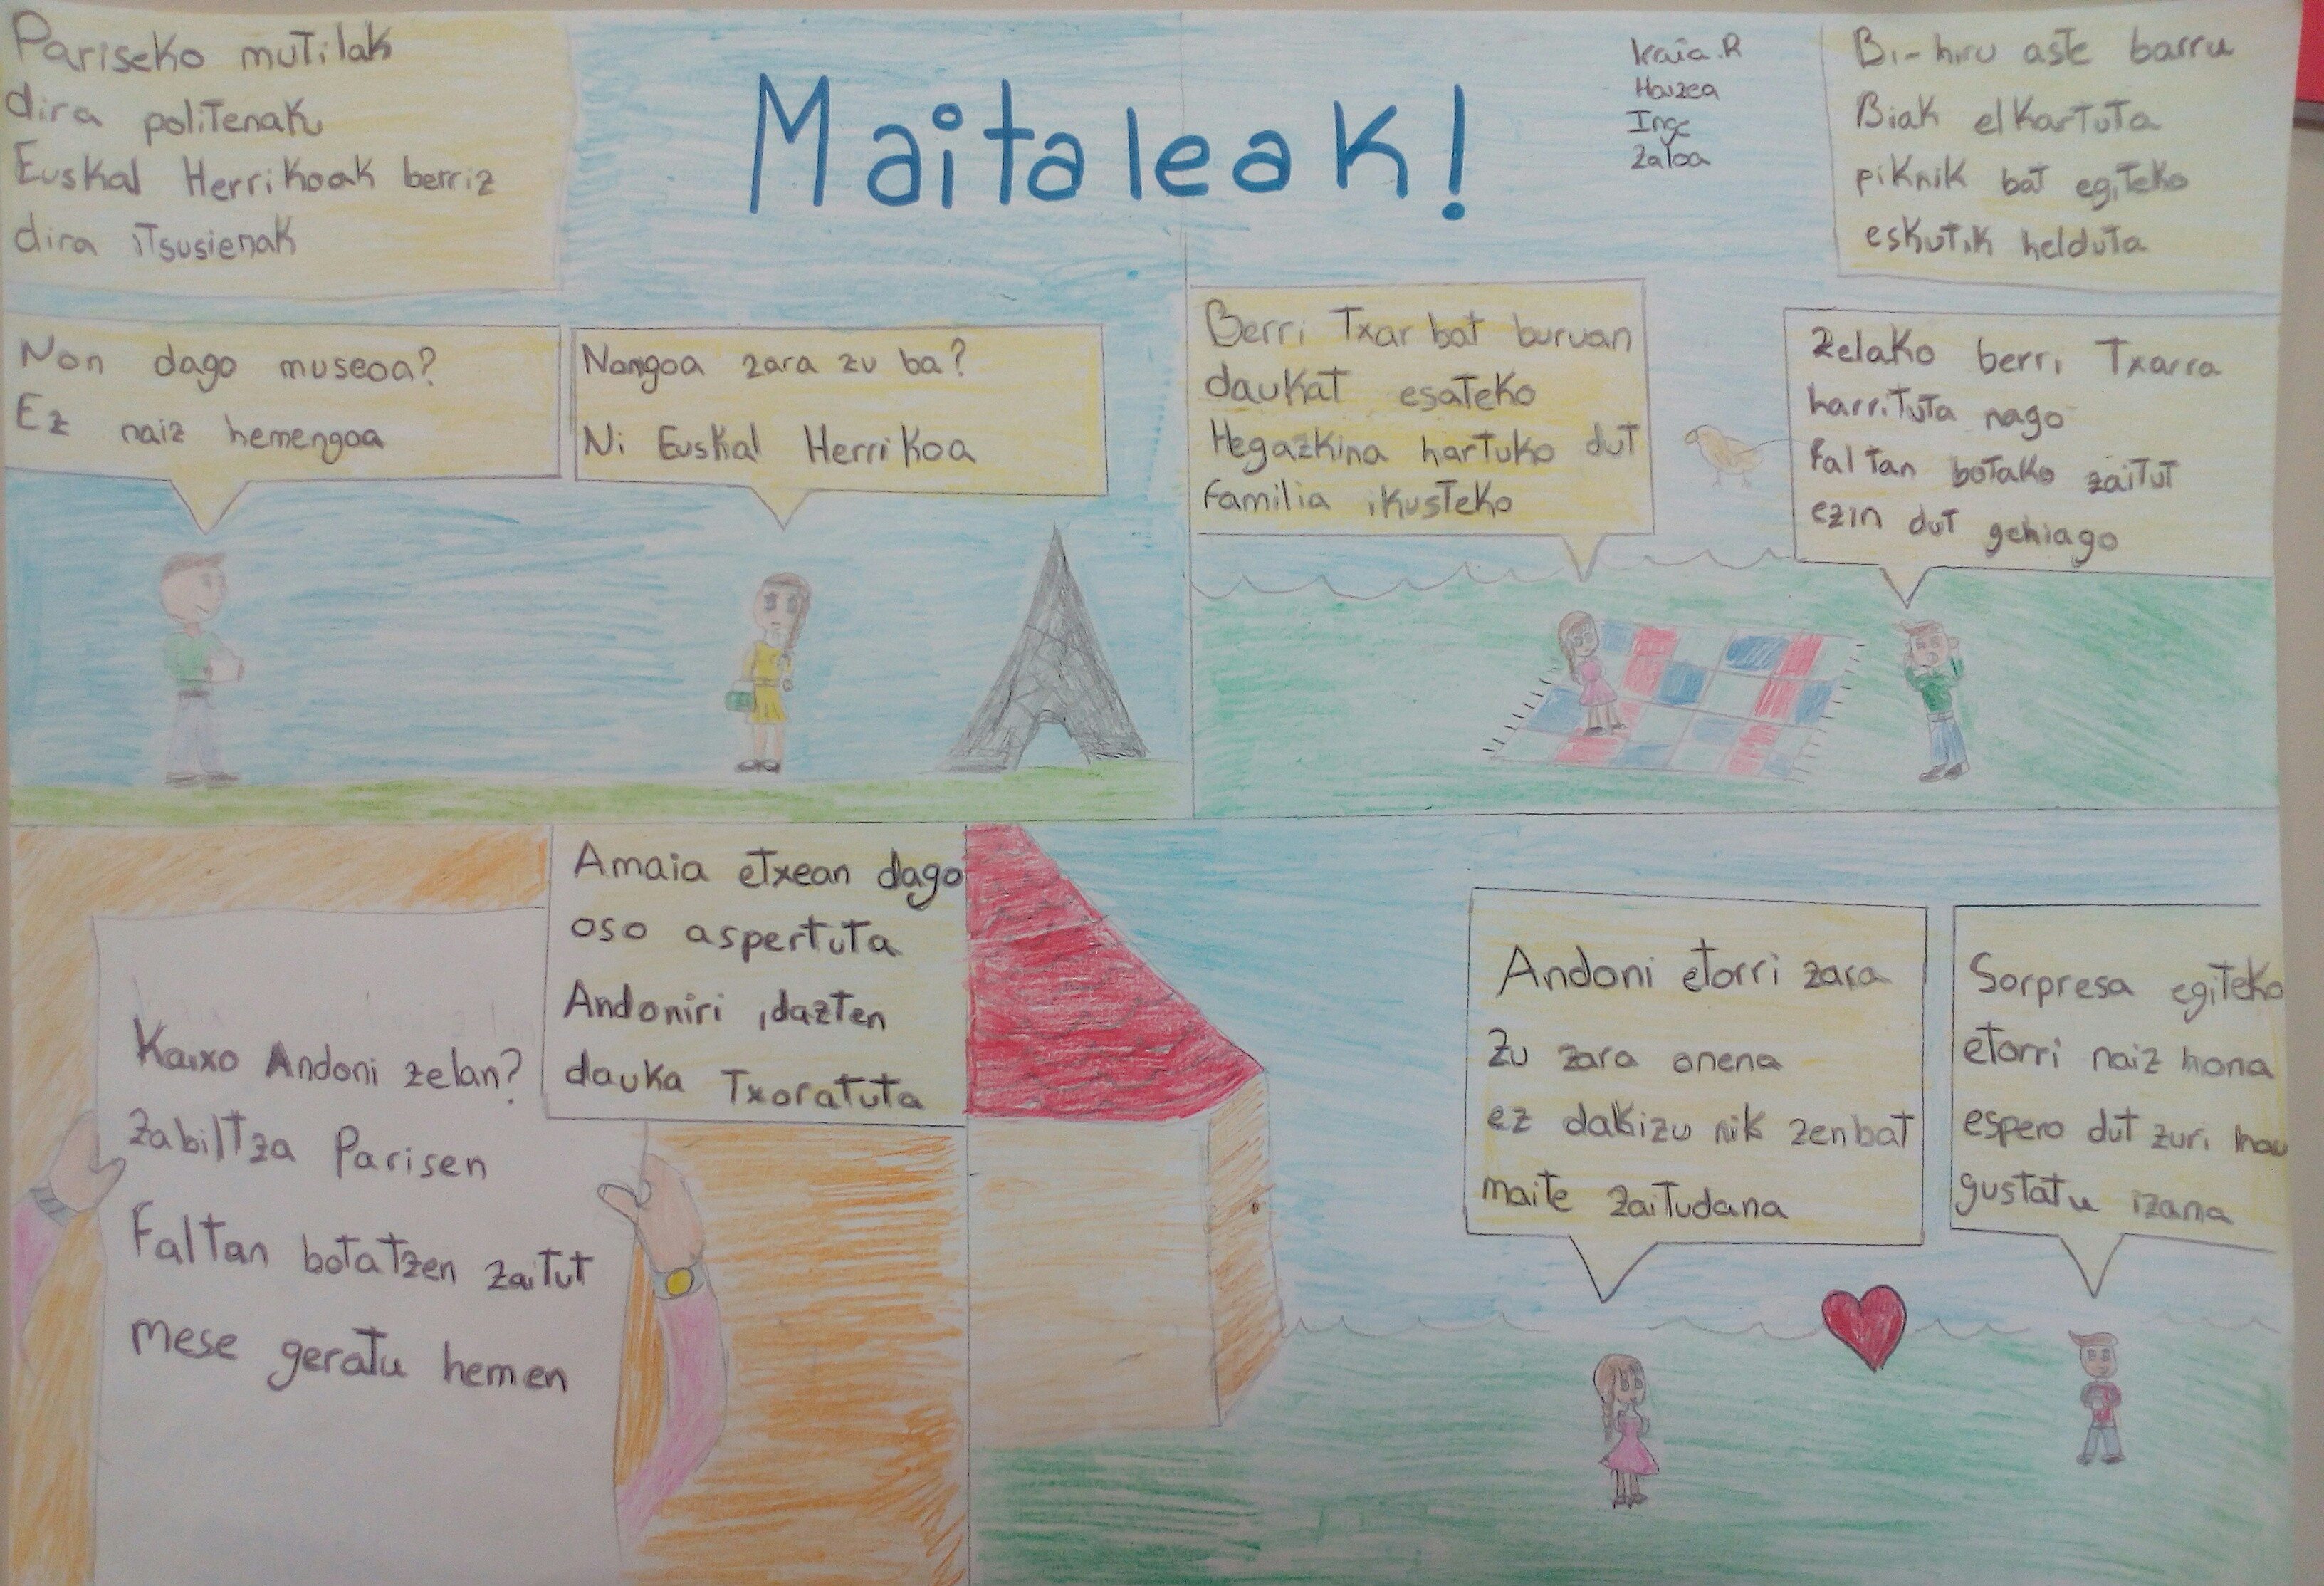 Pariseko mutilak
dira politenak
Euskal Herrikoak berriz
dira itsusienak
Maitaleak!
Non dago museoa?
Ez naiz hemengoa
Nongoa zara zu ba?
Ni Euskal Herrikoa
Iraia.R
Haizea
Inge
Zaloa
Bi-hiru aste barru
Biak elkartuta
piknik bat egiteko
eskutik helduta
Berri Txar bat buruan
daukat esateko
Hegazkina hartuko dut
familia ikusteko
Zelako berri Txarra
harrituta nago
faltan botako zaitut
ezin dut gehiago
Amaia etxean dago
oso aspertuta
Andoniri idazten
dauka Txoratuta
Kaixo Andoni zelan?
zabiltza Parisen
Faltan botatzen zaitut
mese geratu hemen
Andoni etorri zara
zu zara onena
ez dakizu nik zenbat
maite zaitudana
Sorpresa egiteko
etorri naiz hona
espero dut zuri hau
gustatu izana